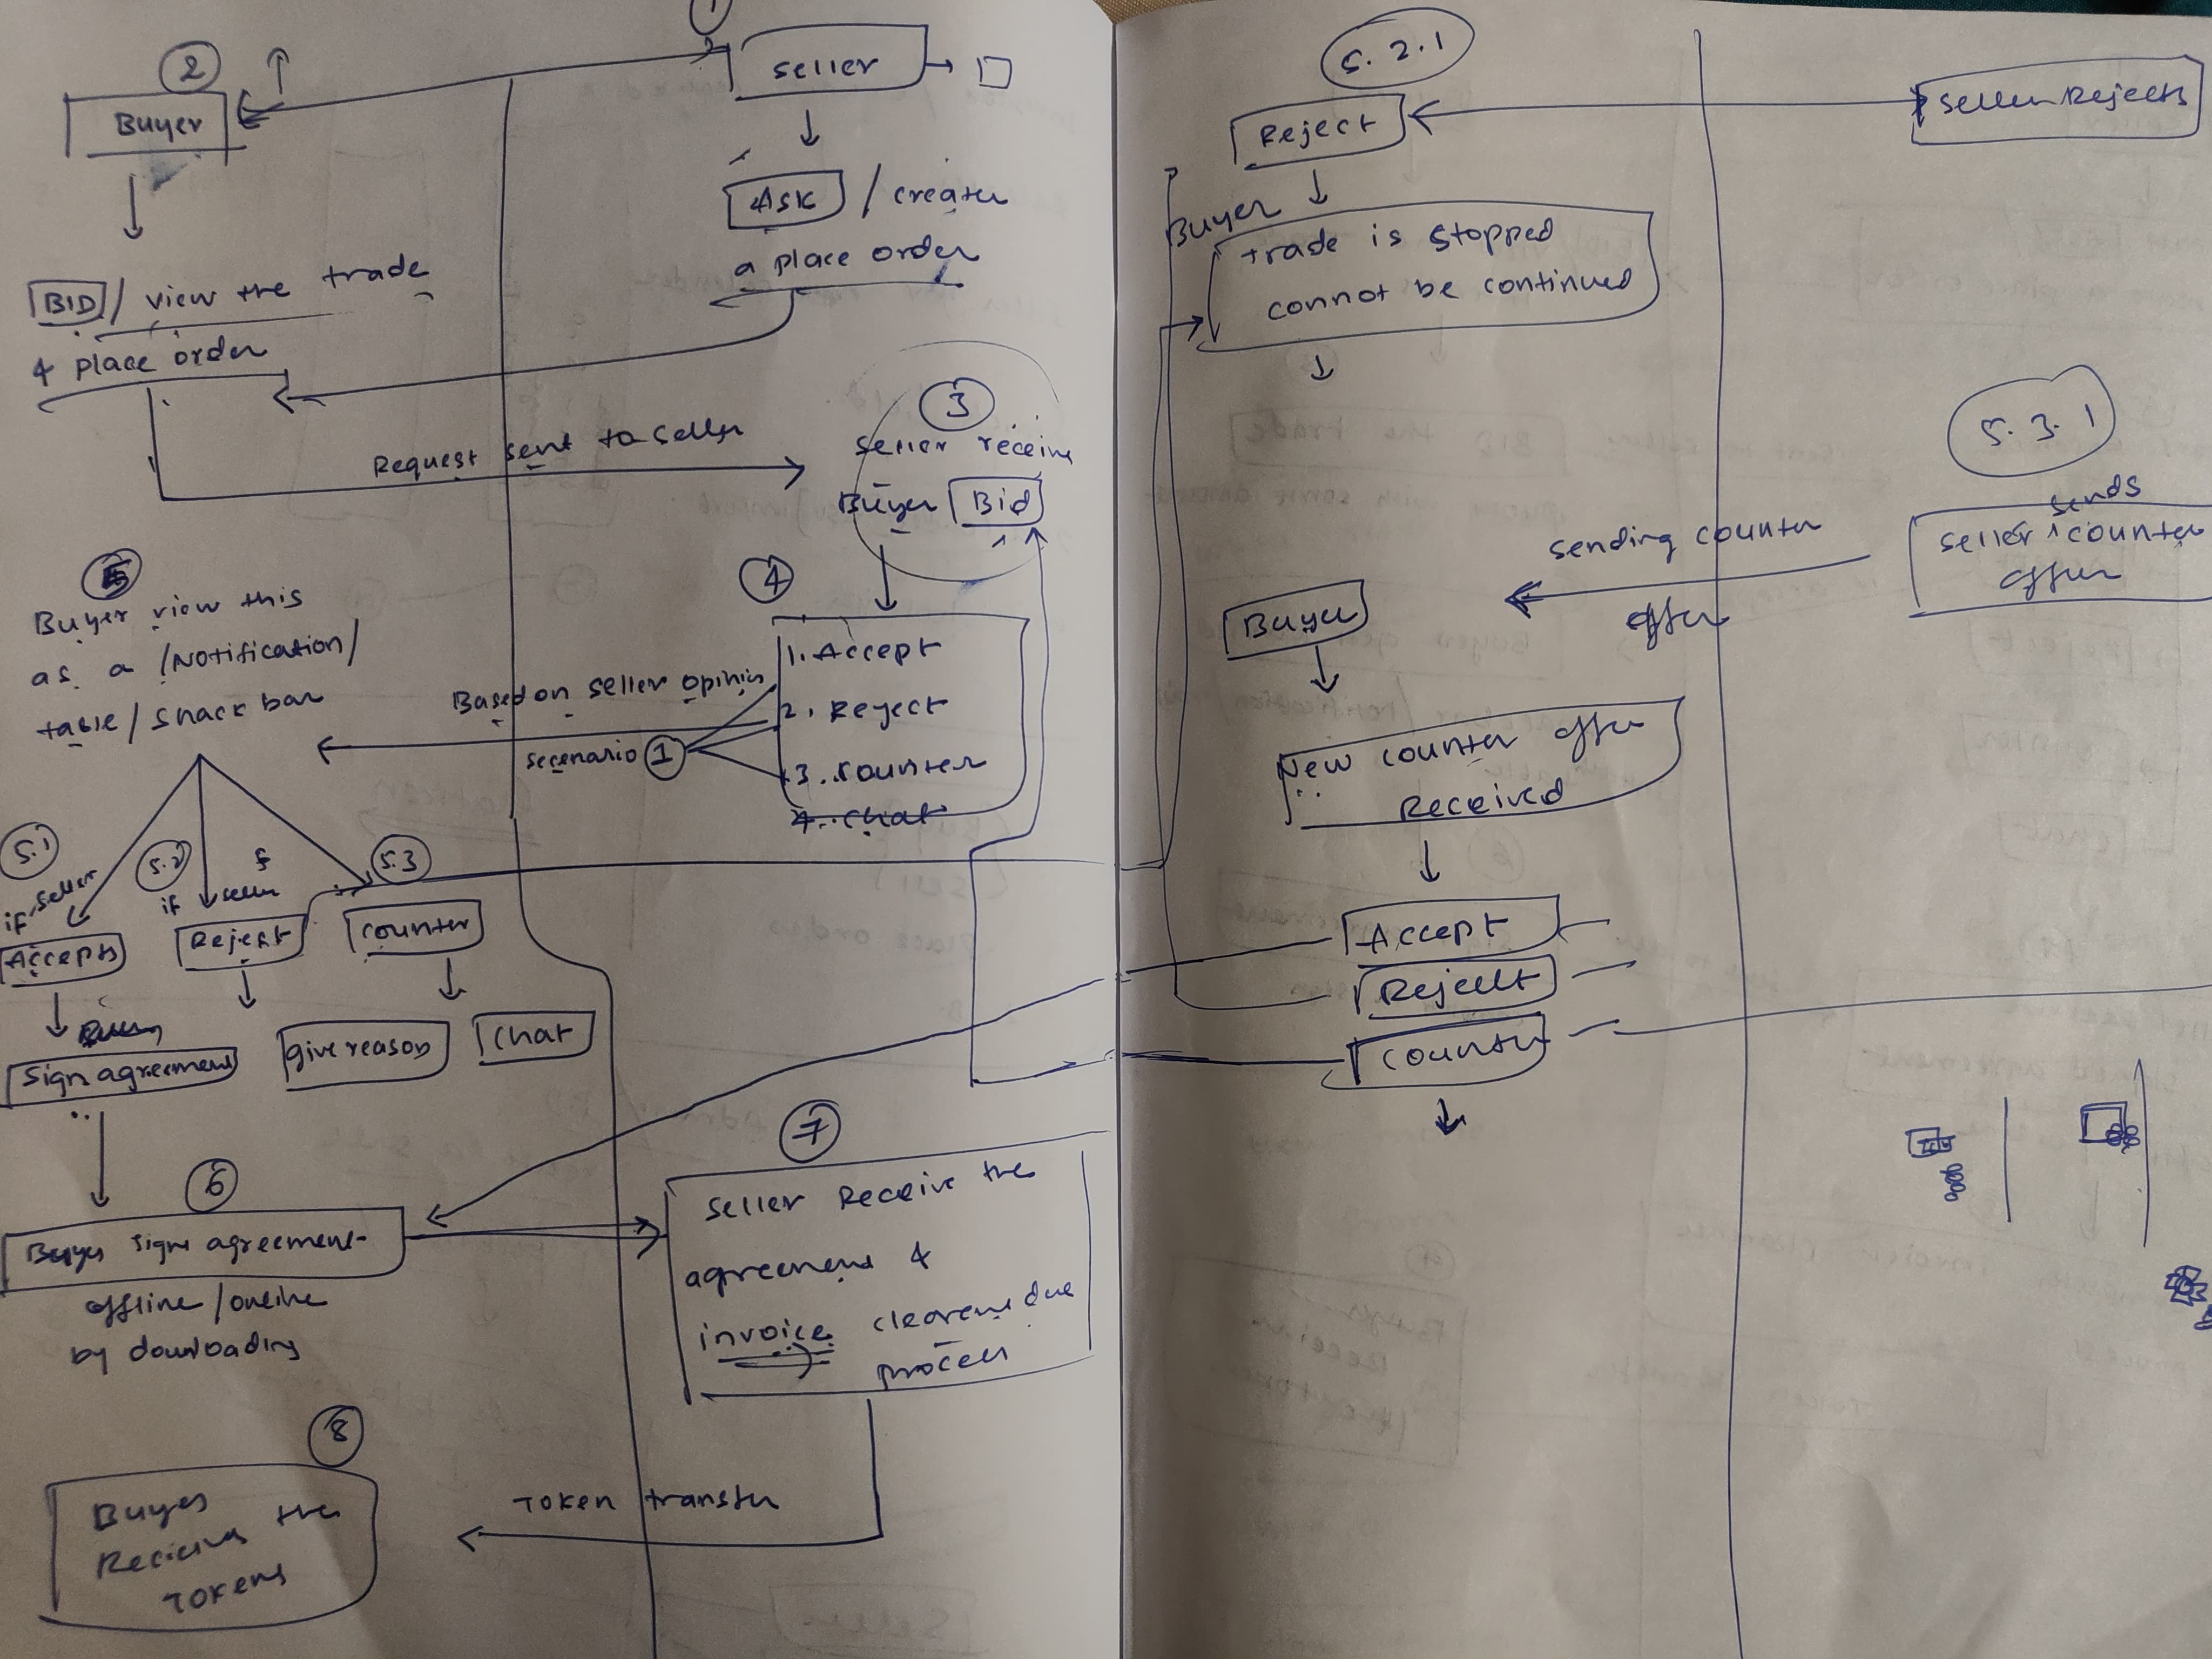 1
2
seller
Buyer
ASK / creates
a place order
BID / view the trade
& place order
3
Request sent to seller
seller receive
Buyer Bid
5
4
Buyer view this
as a /Notification/
table/ snack bar
Based on seller opinion
scenario 1
1. Accept
2. Reject
3. counter
4. chat
5.1
5.2
5.3
if seller
if seller
Accepts
Reject
counter
Sign agreement
give reason
chat
6
Buyer sign agreement
offline /online
by downloading
7
seller Receive the
agreement &
invoice clearence due
process
8
Token transfer
Buyer
the
Tokens
5.2.1
Reject
seller Rejects
Buyer
trade is stopped
connot be continued
5.3.1
sends
seller ^ counter
offer
sending counter
offer
Buyer
New counter offer
Received
Accept
Reject
counter